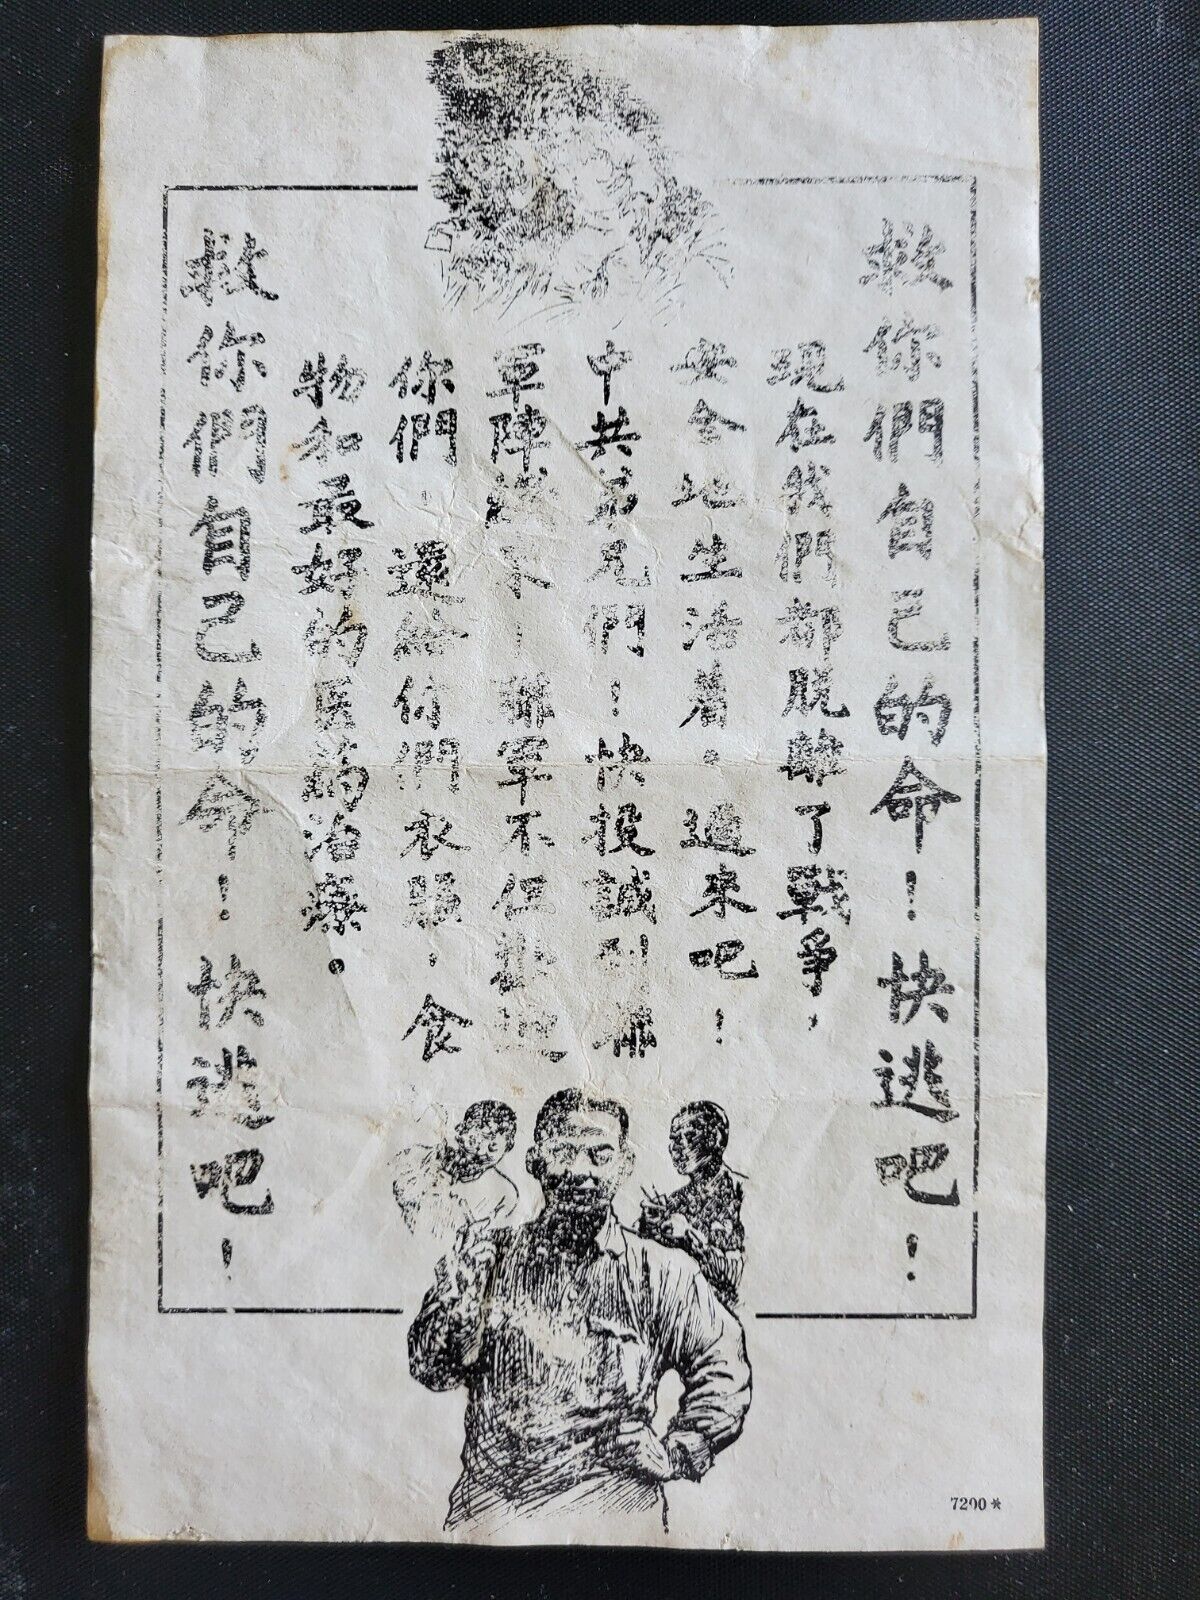 救你們自己的命！快逃吧！
現在我們都脫離了戰爭，
安全地生活着。過來吧！
中共弟兄們！快投誠到聯
軍陣綫來！聯軍不但歡迎
你們，還給你們衣服，食
物和最好的医葯治療。
救你們自己的命！快逃吧！
7200*